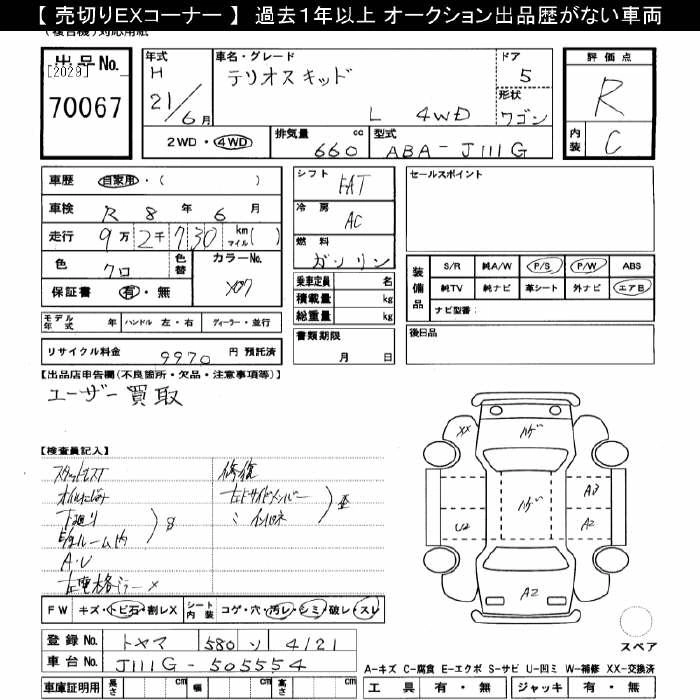 【 売切りEXコーナー 】 過去1年以上 オークション出品歴がない車両
(複合機)対応用紙
出品No.
[2029]
70067
年式
H
21/6月
車名・グレード
テリオスキッド
L 4WD
ドア
5
形状
ワゴン
2WD・4WD
排気量 660 cc
型式 ABA-J111G
評価点
R
内装 C
車歴 自家用・( )
車検 R 8年 6月
走行 9万2千730 km マイル( )
色 クロ
色替
カラーNo. X07
保証書 有・無
モデル年式 年 ハンドル 左・右 ディーラー・並行
リサイクル料金 9970 円 預託済
シフト FAT
冷房 AC
燃料 ガソリン
乗車定員 名
積載量 kg
総重量 kg
書類期限
月 日
セールスポイント
装備品
S/R 純A/W P/S P/W ABS
純TV 純ナビ 革シート 外ナビ エアB
ナビ型番:
後日品
【出品店申告欄(不良箇所・欠品・注意事項等)】
ユーザー買取
【検査員記入】
下廻り
A・U
修復
FW キズ・トビ石・割レX シート内装 コゲ・穴・汚レ・シミ・破レ・スレ
登録No. トヤマ 580 ソ 4121
車台No. J111G-505554
車庫証明用 長さ cm 幅 cm 高さ cm
XX
ハゲ
ハゲ
A3
U2
A2
A2
スペア
A-キズ C-腐食 E-エクボ S-サビ U-凹ミ W-補修 XX-交換済
工具 有・無 ジャッキ 有・無